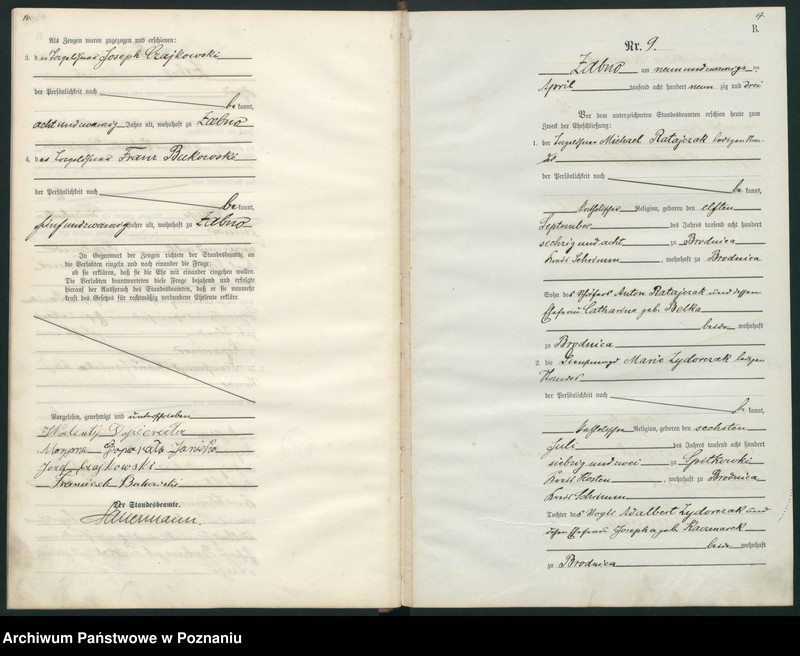 16.
Als Zeugen waren zugezogen und erschienen:
3. der Joseph Czajkowski
der Persönlichkeit nach
be kannt,
acht und zwanzig Jahre alt, wohnhaft zu Zabno
4. der Franz Bukowski
der Persönlichkeit nach
be kannt,
fünf und zwanzig Jahre alt, wohnhaft zu Zabno
In Gegenwart der Zeugen richtete der Standesbeamte an
die Verlobten einzeln und nach einander die Frage:
ob sie erklären, daß sie die Ehe mit einander eingehen wollen.
Die Verlobten beantworteten diese Frage bejahend und erfolgte
hierauf der Ausspruch des Standesbeamten, daß er sie nunmehr
kraft des Gesetzes für rechtmäßig verbundene Eheleute erkläre.
Vorgelesen, genehmigt und unterschrieben
Józef Czajkowski
Franciszek Bukowski
Der Standesbeamte.
17.
B.
Nr. 9.
Zabno am neun und zwanzigsten
April tausend acht hundert neun zig und drei
Vor dem unterzeichneten Standesbeamten erschien heute zum
Zweck der Eheschließung:
1. der Michael Ratajczak ledigen Stan-
des
der Persönlichkeit nach
be kannt,
katholischer Religion, geboren den elften
September des Jahres tausend acht hundert
sechzig und acht zu Brodnica
Kreis Schrimm, wohnhaft zu Brodnica
Sohn des Schäfers Anton Ratajczak und dessen
Ehefrau Catharina geb. Belka
beide wohnhaft
zu Brodnica
2. die Dienstmagd Marie Zydorczak ledigen
Standes
der Persönlichkeit nach
be kannt,
katholischer Religion, geboren den sechsten
Juli des Jahres tausend acht hundert
siebzig und zwei zu Spitkowki
Kreis Kosten, wohnhaft zu Brodnica
Kreis Schrimm
Tochter des Vogts Adalbert Zydorczak und
dessen Ehefrau Josepha geb. Kaczmarek
beide wohnhaft
zu Brodnica
Archiwum Państwowe w Poznaniu